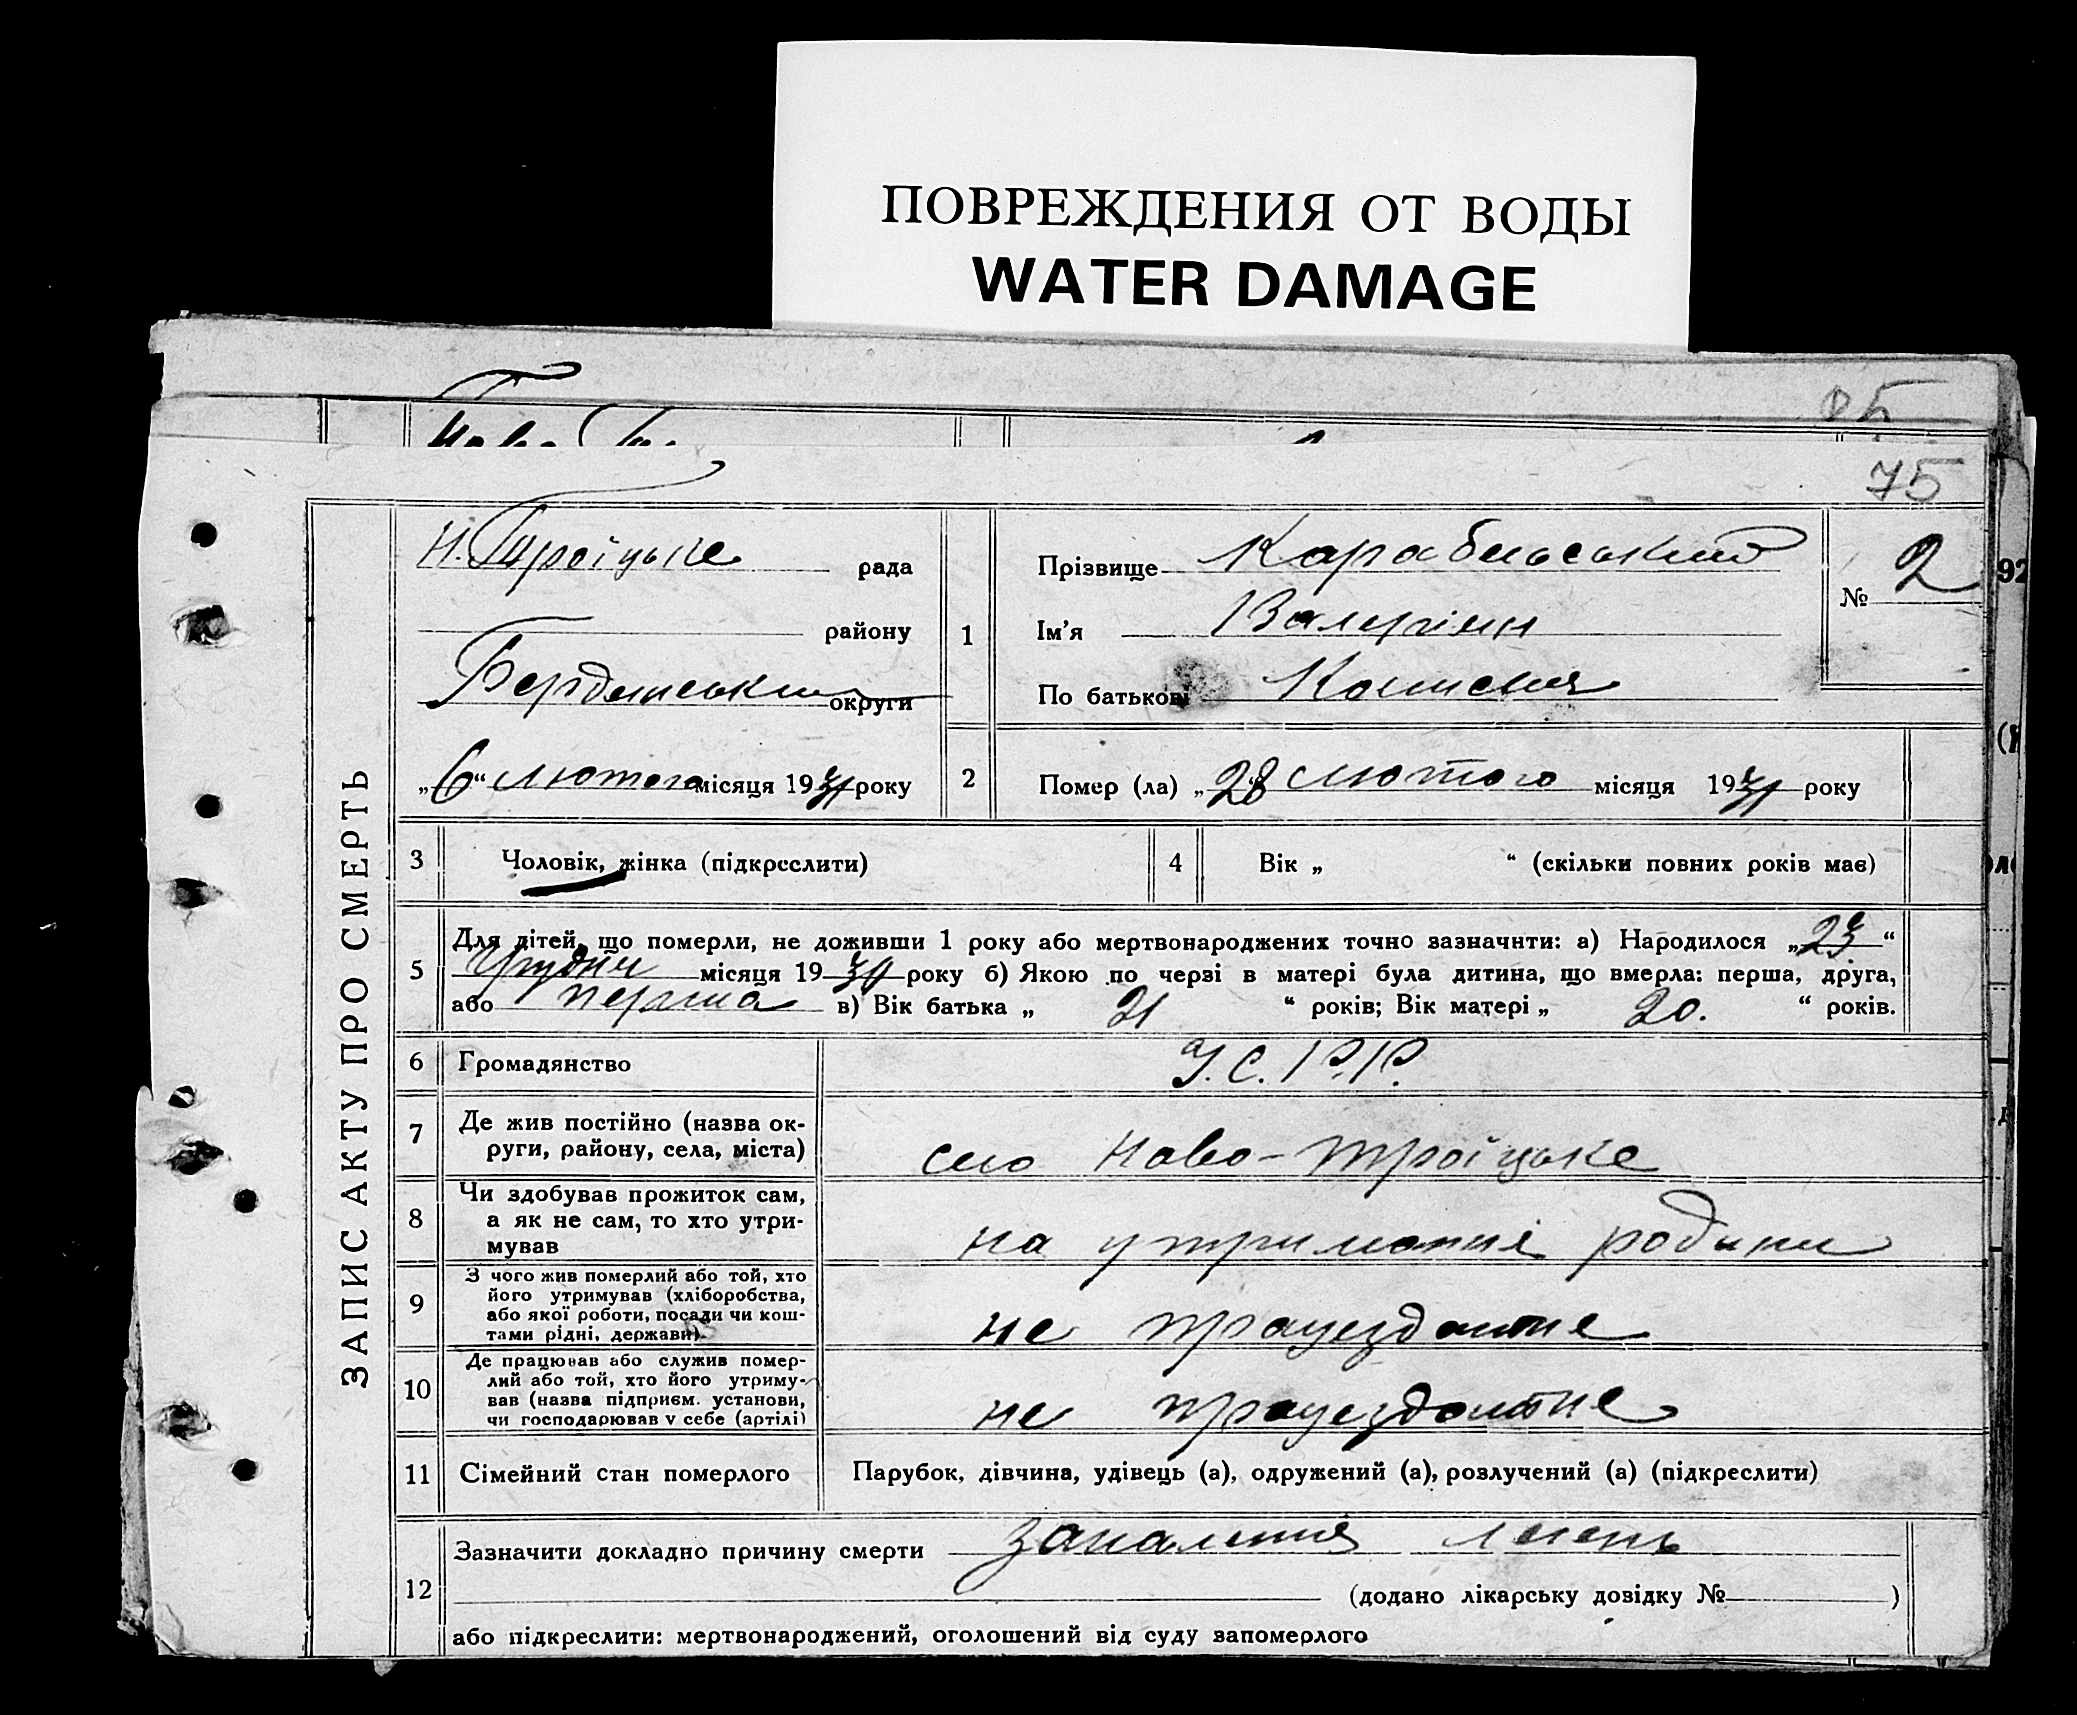 ПОВРЕЖДЕНИЯ ОТ ВОДЫ
WATER DAMAGE
75
ЗАПИС АКТУ ПРО СМЕРТЬ
Н. Троїцьке рада
району
Бердянський округи
„6“ лютого місяця 1931 року
1
Прізвище Карабельський
Ім’я Валеріян
По батькові
№ 2
2 Помер (ла) „28 лютого місяця 1931 року
3 Чоловік, жінка (підкреслити)
4 Вік „ “ (скільки повних років має)
5 Для дітей, що померли, не доживши 1 року або мертвонароджених точно зазначити: а) Народилося „23“
Грудня місяця 1930 року б) Якою по черзі в матері була дитина, що вмерла: перша, друга,
або перша в) Вік батька „ 21 “ років; Вік матері „ 20. “ років.
6 Громадянство У.С.Р.Р.
7 Де жив постійно (назва ок-
руги, району, села, міста) село Ново-Троїцьке
8 Чи здобував прожиток сам,
а як не сам, то хто утри-
мував на утриманні родини
9 З чого жив померлий або той, хто
його утримував (хліборобства,
або якої роботи, посади чи кош-
тами рідні, держави). не працездатне
10 Де працював або служив помер-
лий або той, хто його утриму-
вав (назва підприєм. установи,
чи господарював у себе (артілі) не працездатне
11 Сімейний стан померлого Парубок, дівчина, удівець (а), одружений (а), розлучений (а) (підкреслити)
12 Зазначити докладно причину смерти запалення легень
(додано лікарську довідку № )
або підкреслити: мертвонароджений, оголошений від суду запомерлого